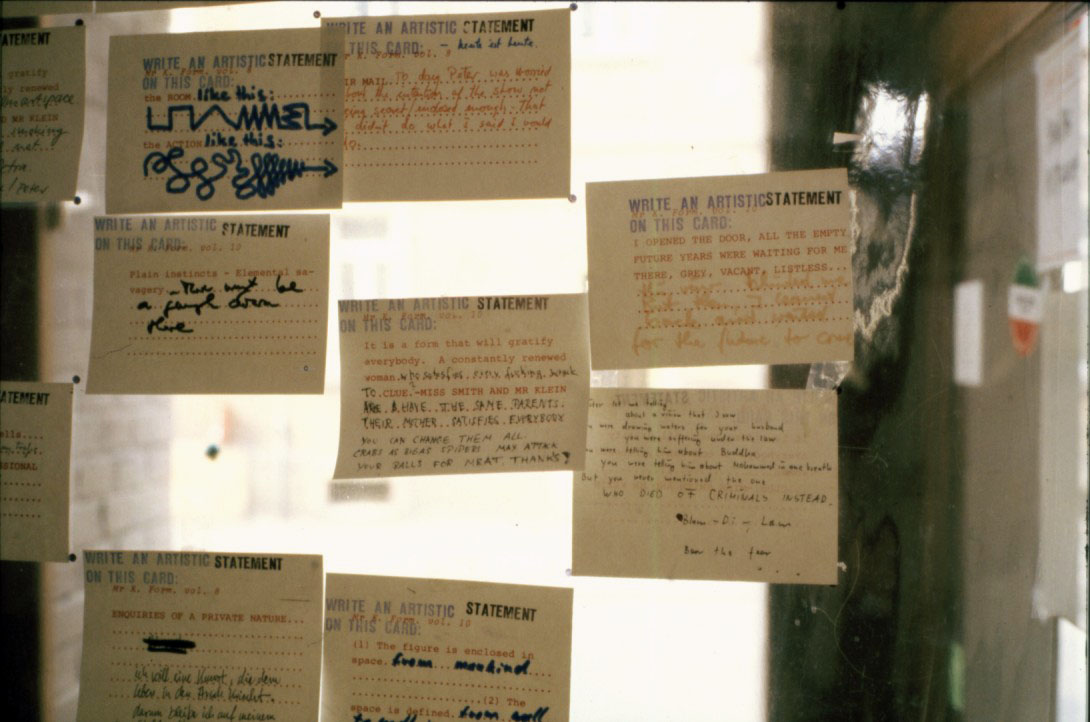 ATEMENT
gratify
ly renewed
D MR KLEIN
WRITE AN ARTISTIC STATEMENT
ON THIS CARD:
Mr X. Form. vol. 8
the ROOM like this:
the ACTION like this:
WRITE AN ARTISTIC STATEMENT
THIS CARD: - heute ist heute.
Form. vol. 8
IR MAIL. To day Peter was worried
about the intention of the show not
being secret/ enough - That
I didn't do what I said I would
do:
WRITE AN ARTISTIC STATEMENT
ON THIS CARD:
Form. vol. 10
Plain instincts - Elemental sa-
vagery - There must be
a down
there
WRITE AN ARTISTIC STATEMENT
ON THIS CARD:
Mr X. Form. vol. 10
It is a form that will gratify
everybody. A constantly renewed
woman who satisfies every fishing week
TO CLUE.-MISS SMITH AND MR KLEIN
ARE & HAVE THE SAME PARENTS.
THEIR MOTHER SATISFIES EVERYBODY
YOU CAN CHANGE THEM ALL.
CRABS AS BIG AS SPIDERS MAY ATTACK
YOUR BALLS FOR MEAT. THANKS!
WRITE AN ARTISTIC STATEMENT
ON THIS CARD:
Mr X. Form. vol. 10
I OPENED THE DOOR, ALL THE EMPTY
FUTURE YEARS WERE WAITING FOR ME
THERE, GREY, VACANT, LISTLESS...
the view blinded me
but then I leaned
back and waited
for the future to come
about a vision that I saw
were drawing water for your husband
you were suffering under the law
were telling him about Buddha
you were telling him about Mohammed in one breath
But you never mentioned the one
WHO DIED OF CRIMINALS INSTEAD.
ATEMENT
ells....
SIONAL
WRITE AN ARTISTIC STATEMENT
ON THIS CARD:
Mr X. Form. vol. 8
ENQUIRIES OF A PRIVATE NATURE...
Ich will eine Kunst, die dem
leben in den Arsch kriecht.
darum bleibe ich auf meinem
WRITE AN ARTISTIC STATEMENT
ON THIS CARD:
Mr X. Form. vol. 10
(1) The figure is enclosed in
space. from mankind
(2) The
space is defined. from